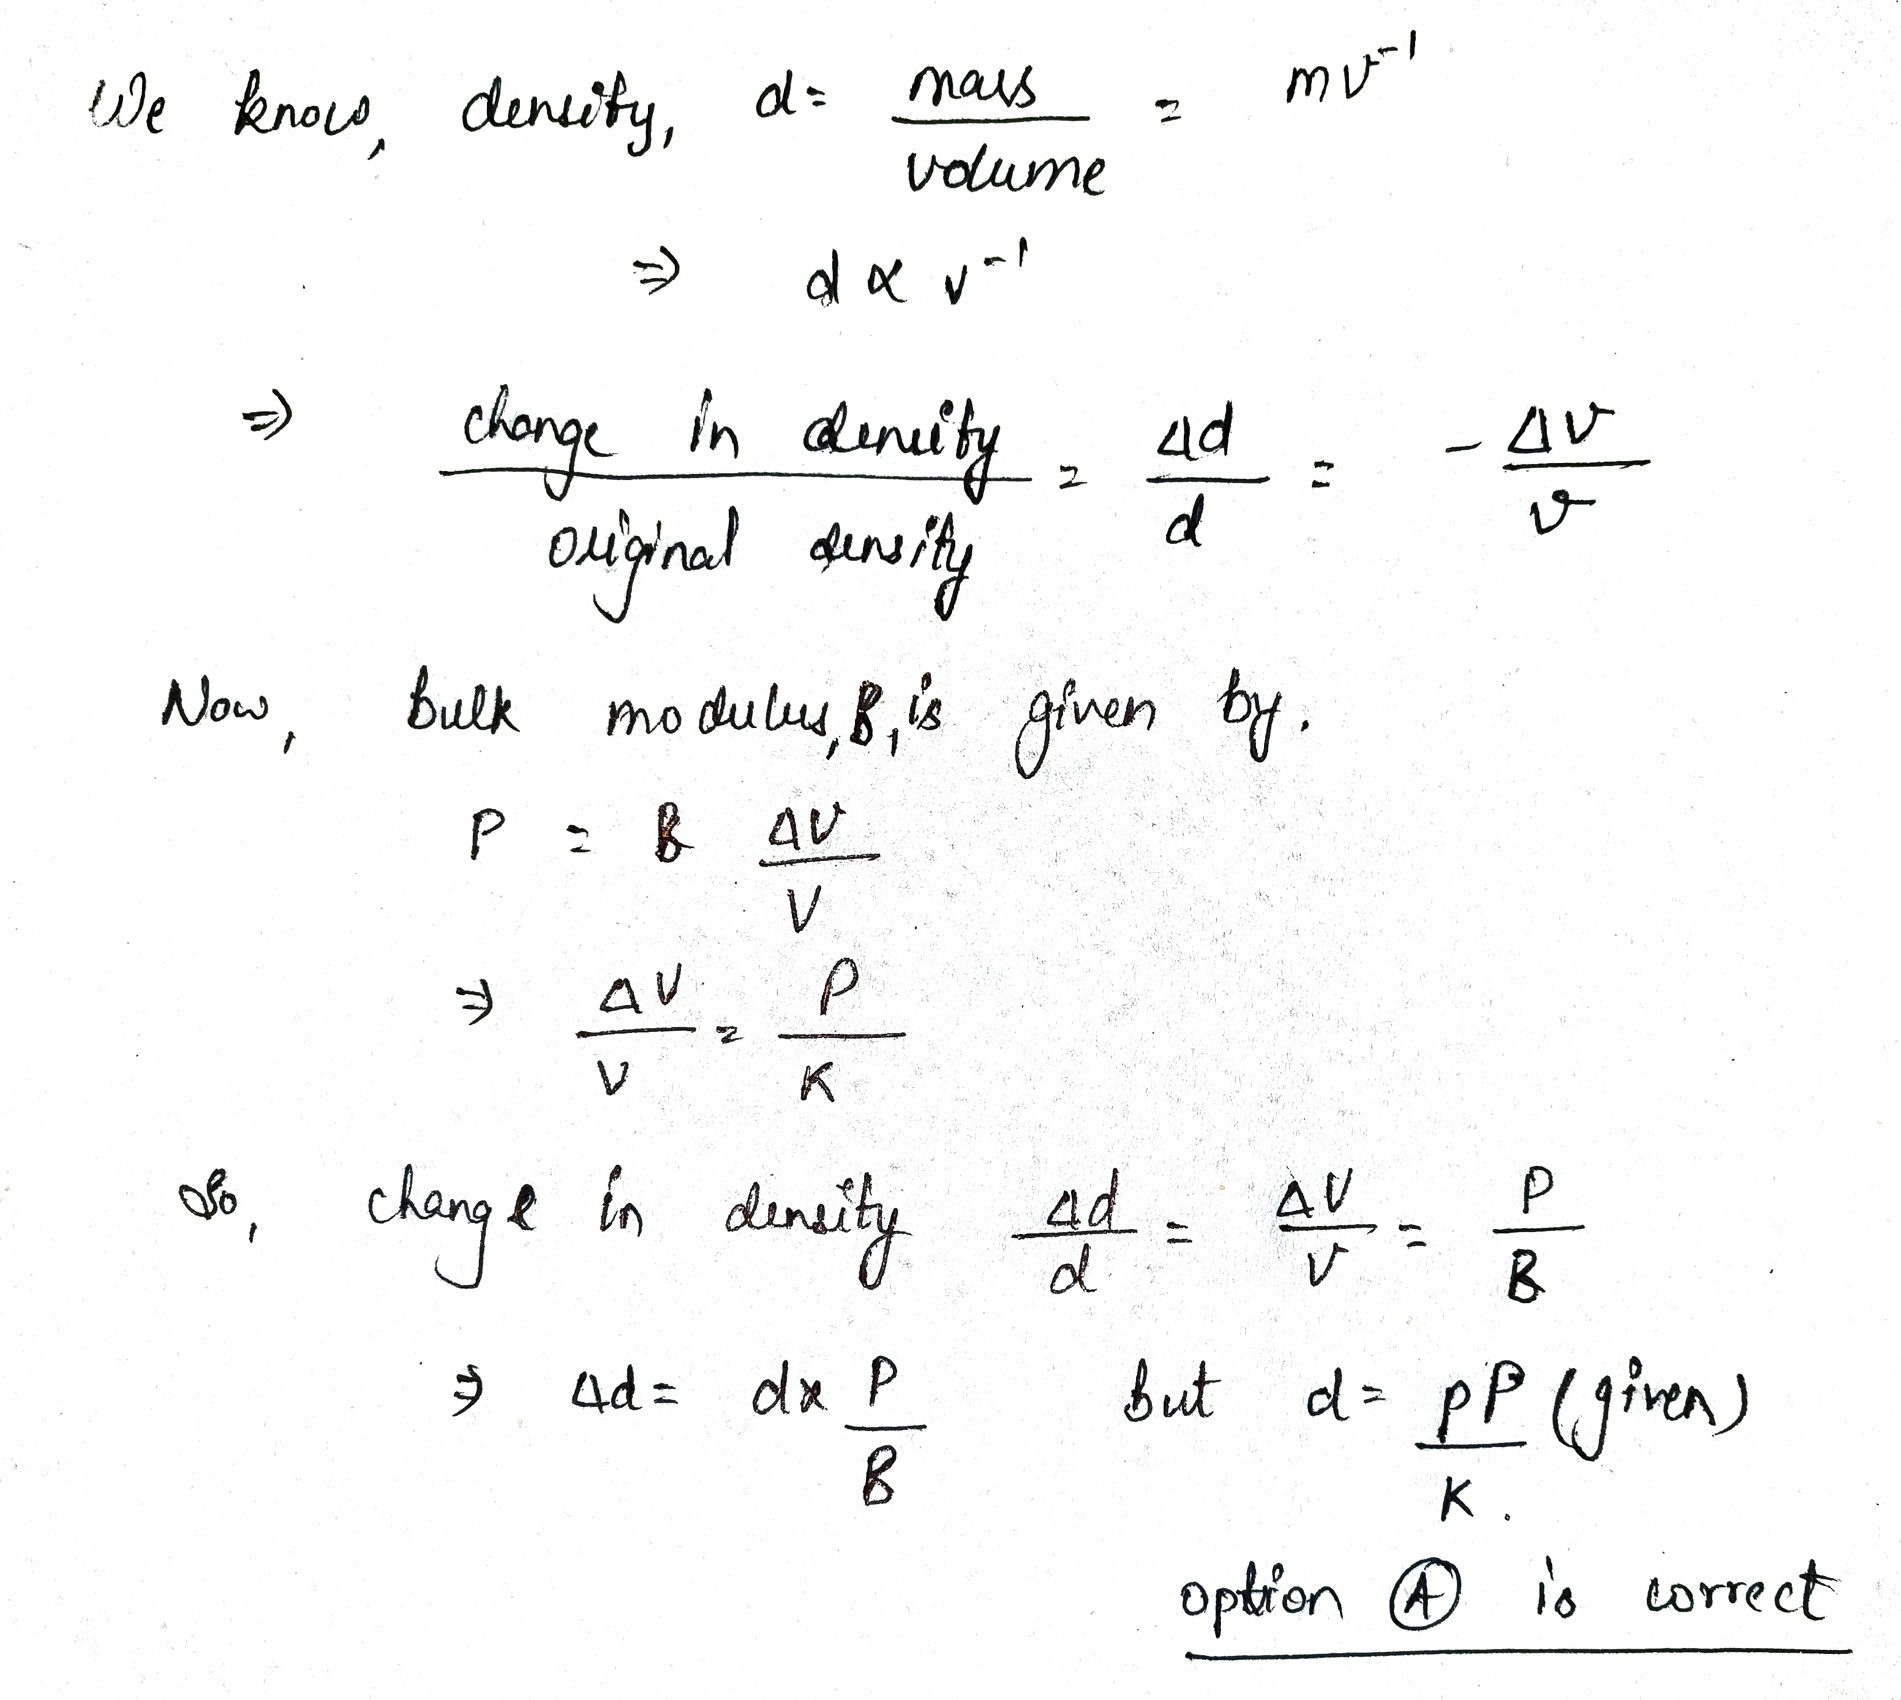 We know, density, d = mass / volume = mv⁻¹
⇒ d ∝ v⁻¹
⇒ change in density / original density = Δd / d = - Δv / v
Now, bulk modulus, B, is given by.
P = B ΔV / V
⇒ ΔV / V = P / K
So, change in density Δd / d = ΔV / V = P / B
⇒ Δd = d x P / B but d = pP / K (given).
option Ⓐ is correct